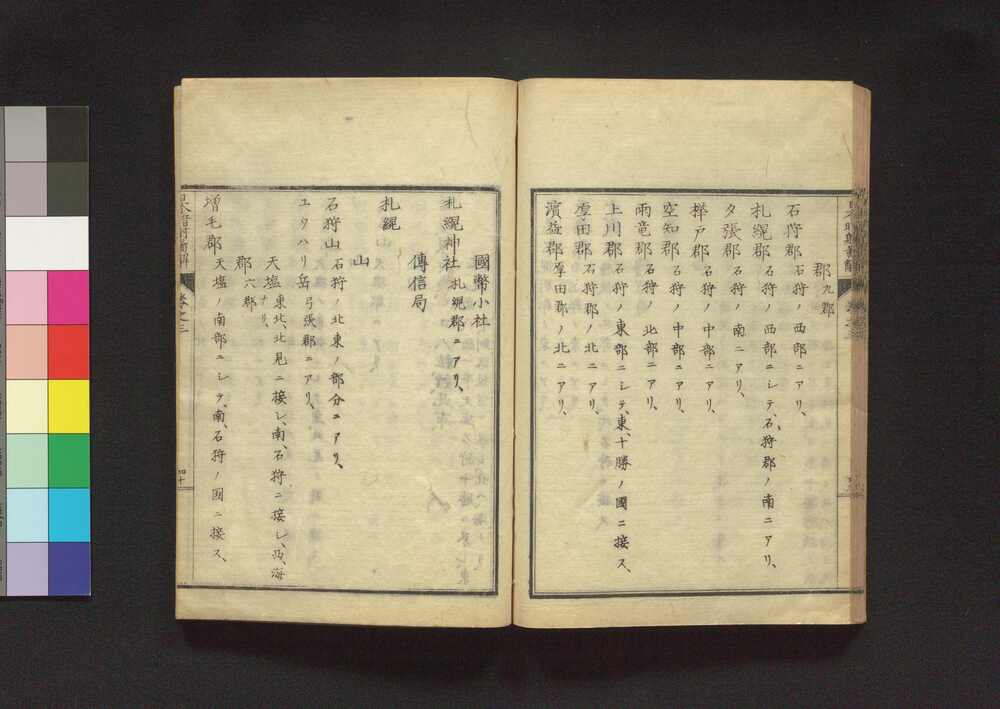 郡九郡
石狩郡石狩ノ西部ニアリ、
札縨郡石狩ノ西部ニシテ、石狩郡ノ南ニアリ、
夕張郡石狩ノ南ニアリ、
樺戸郡石狩ノ中部ニアリ、
空知郡石狩ノ中部ニアリ、
雨竜郡石狩ノ北部ニアリ、
上川郡石狩ノ東部ニシテ、東、十勝ノ國ニ接ス、
厚田郡石狩郡ノ北ニアリ、
濱益郡厚田郡ノ北ニアリ、
國幣小社
札縨神社札縨郡ニアリ、
傳信局
札縨
山
石狩山石狩ノ北東ノ部分ニアリ、
ユウハリ岳弓張郡ニアリ、
天塩東北、北見ニ接シ、南、石狩ニ接シ、西、海ナリ、
郡六郡
増毛郡天塩ノ南部ニシテ、南、石狩ノ國ニ接ス、
卷之三
四十